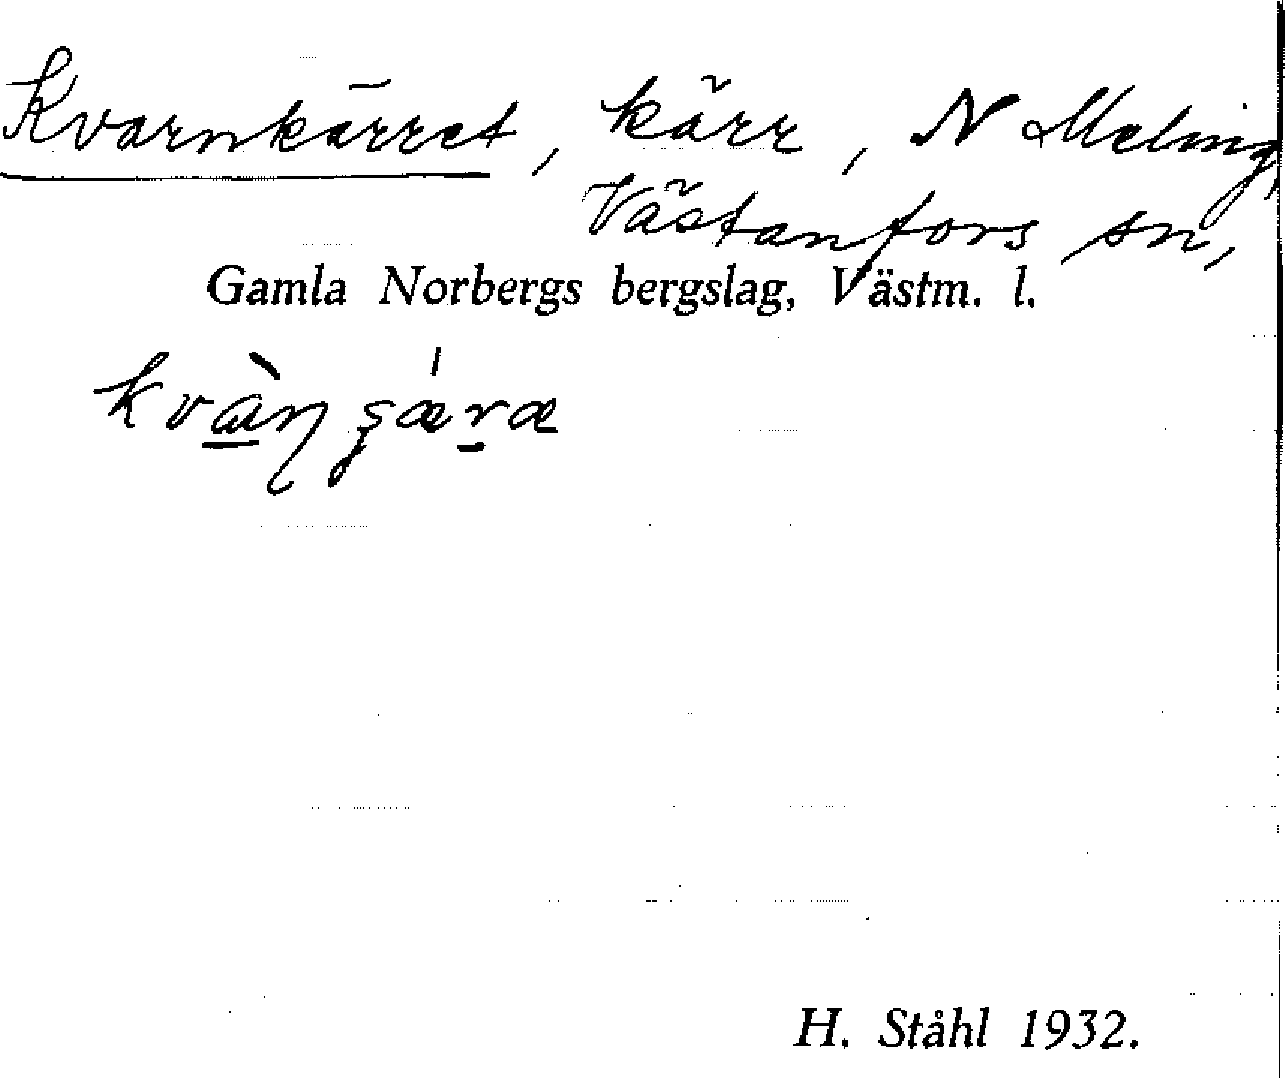 Kvarnkärret, kärr, N Meling,
Västanfors sn,
Gamla Norbergs bergslag, Västm. l.
H. Ståhl 1932.